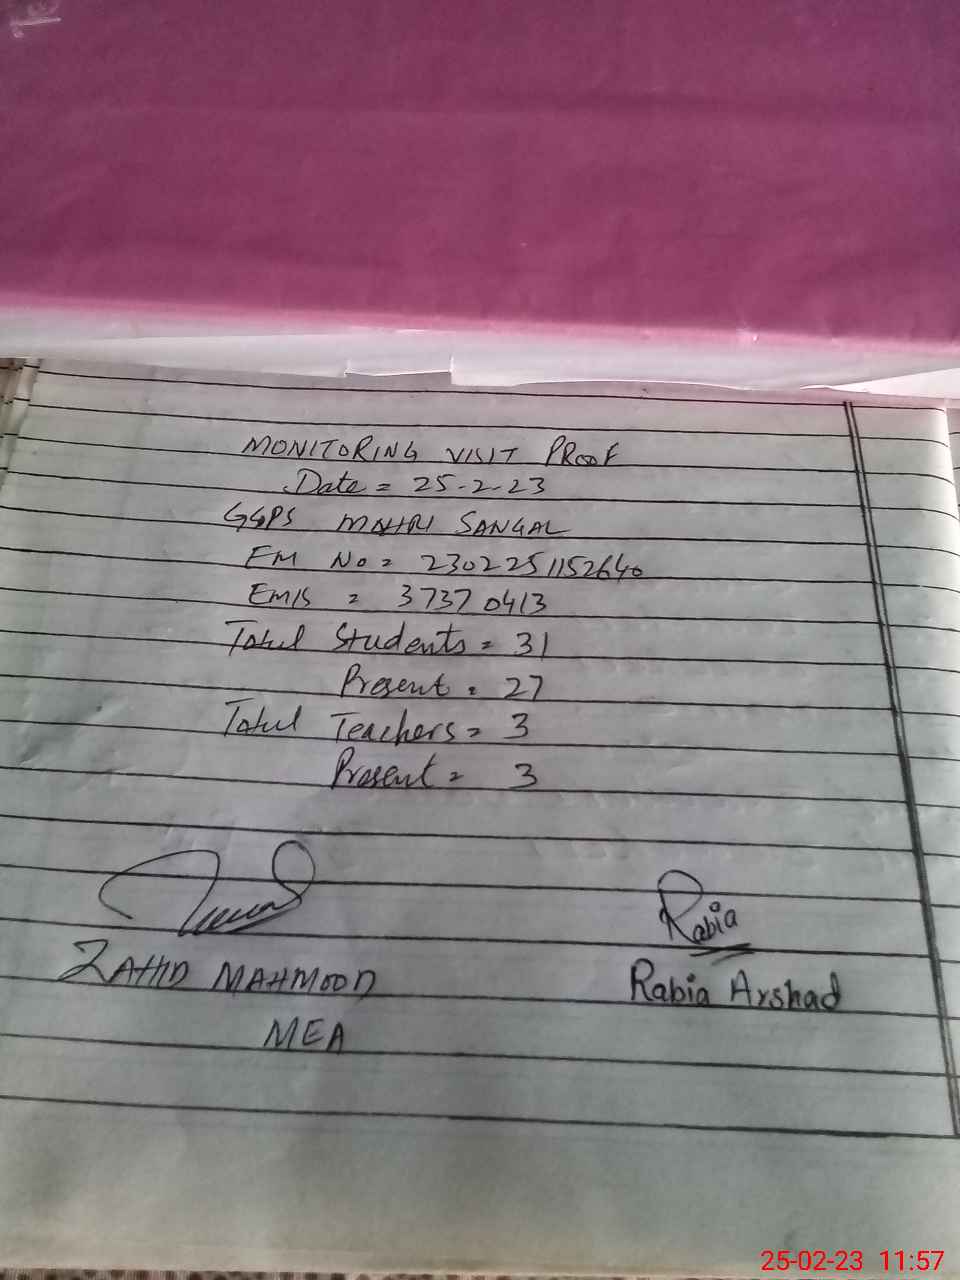 MONITORING VISIT PROOF
Date = 25-2-23
GGPS MAHRI SANGAL
EM No = 2302251152640
EMIS = 37370413
Total Students = 31
Present = 27
Total Teachers = 3
Present = 3
Rabia
ZAHID MAHMOOD
Rabia Arshad
MEA
25-02-23 11:57